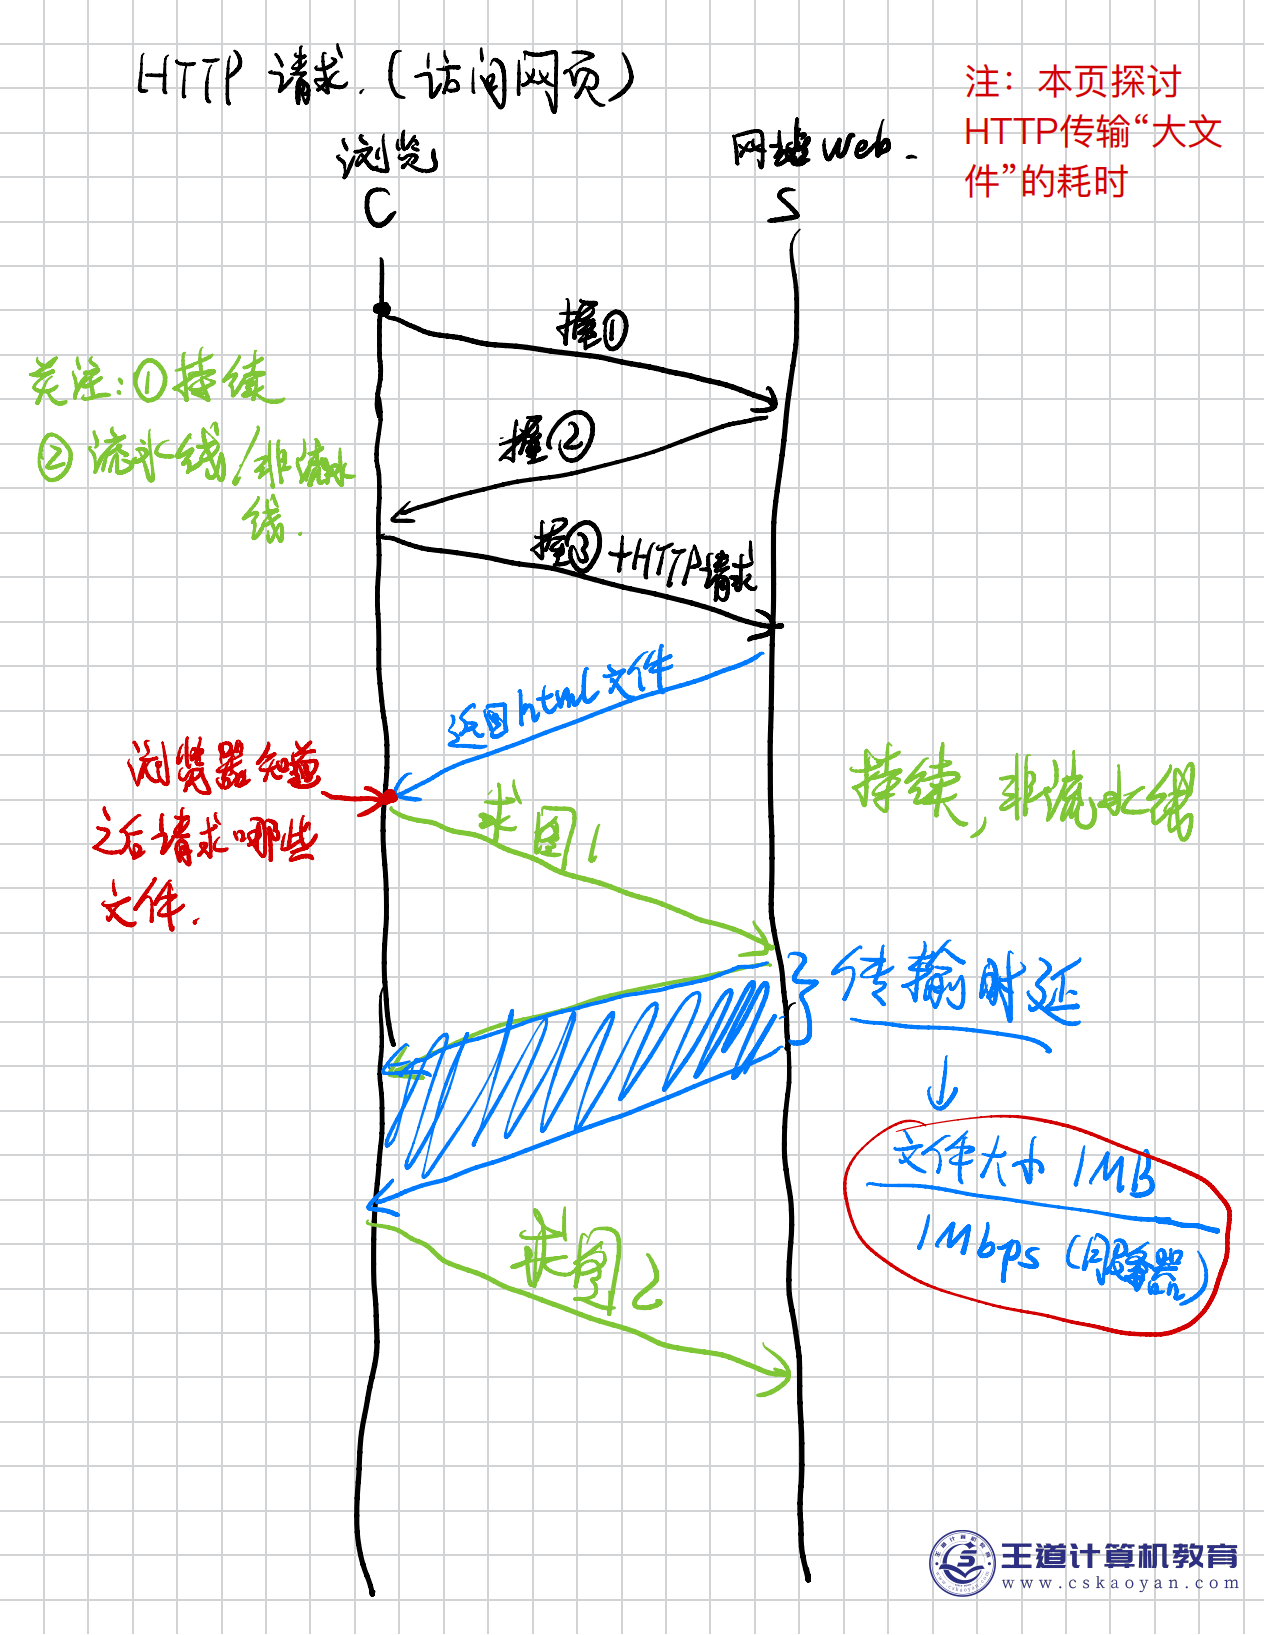 HTTP 请求.(访问网页)
注：本页探讨
HTTP传输“大文
件”的耗时
浏览
C
网站Web.
S
握①
关注:①持续
②流水线/非流水
线.
握②
握③+HTTP请求
返回html文件
浏览器知道
之后请求哪些
文件.
求图1
持续,非流水线
传输时延
文件大小 1MB
1Mbps (服务器)
求图2
王道计算机教育
www.cskaoyan.com